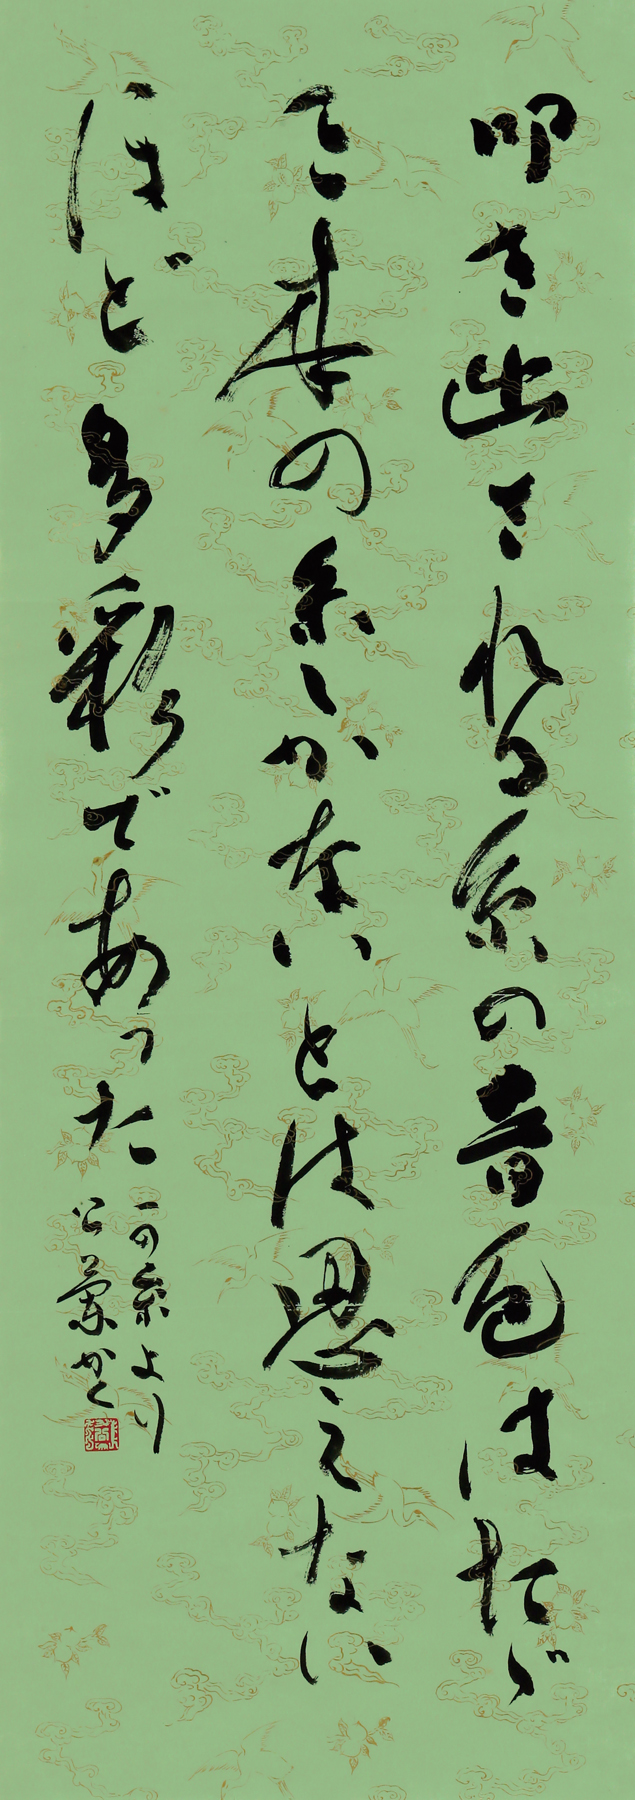 叩き出される糸の音色はたゞ
三本の糸しかないとは思えない
ほど多彩であった
一の糸より
公蘭かく